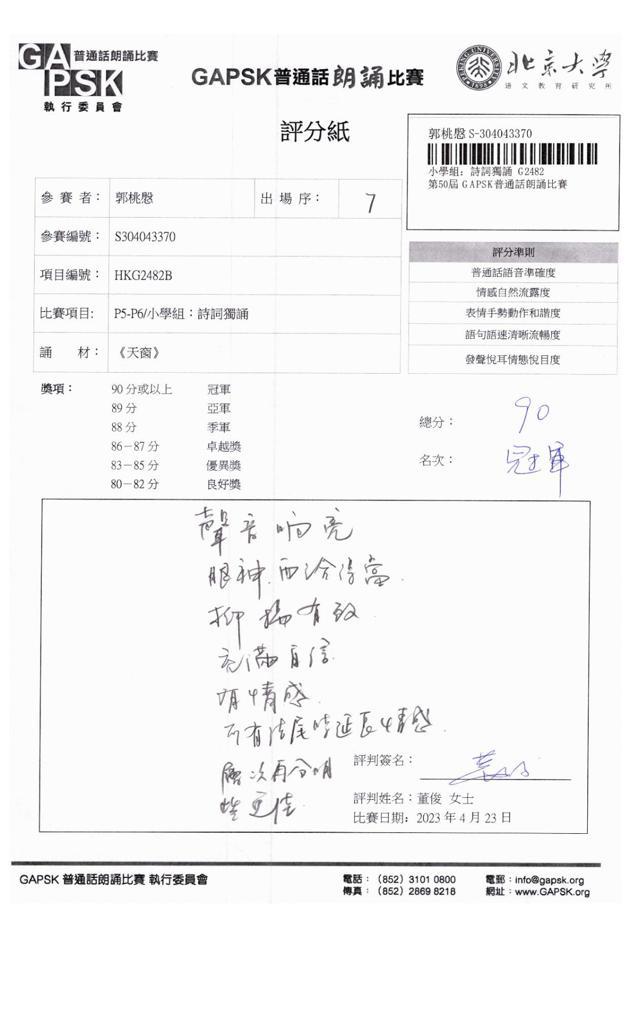 GAPSK 普通話朗誦比賽
執行委員會
GAPSK普通話朗誦比賽
北京大學
語文教育研究所
評分紙
郭桃慇 S-304043370
小學組：詩詞獨誦 G2482
第50屆 GAPSK普通話朗誦比賽
參賽者：郭桃慇 出場序：7
參賽編號：S304043370
項目編號：HKG2482B
比賽項目: P5-P6/小學組：詩詞獨誦
誦材：《天窗》
評分準則
普通話語音準確度
情感自然流露度
表情手勢動作和諧度
語句語速清晰流暢度
發聲悅耳情態悅目度
獎項： 90 分或以上 冠軍
89 分 亞軍
88 分 季軍
86－87 分 卓越獎
83－85 分 優異獎
80－82 分 良好獎
總分： 90
名次： 冠軍
聲音响亮
眼神 恰當
抑揚有致
充滿自信
有情感
所有結尾時延長情感
層次再分明
些更佳
評判簽名：
評判姓名：董俊 女士
比賽日期：2023 年 4 月 23 日
GAPSK 普通話朗誦比賽 執行委員會
電話：(852) 3101 0800
傳真：(852) 2869 8218
電郵：info@gapsk.org
網址：www.GAPSK.org